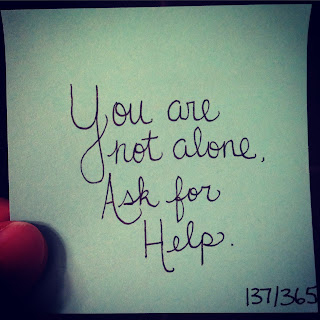 You are
not alone.
Ask for
Help.
137/365